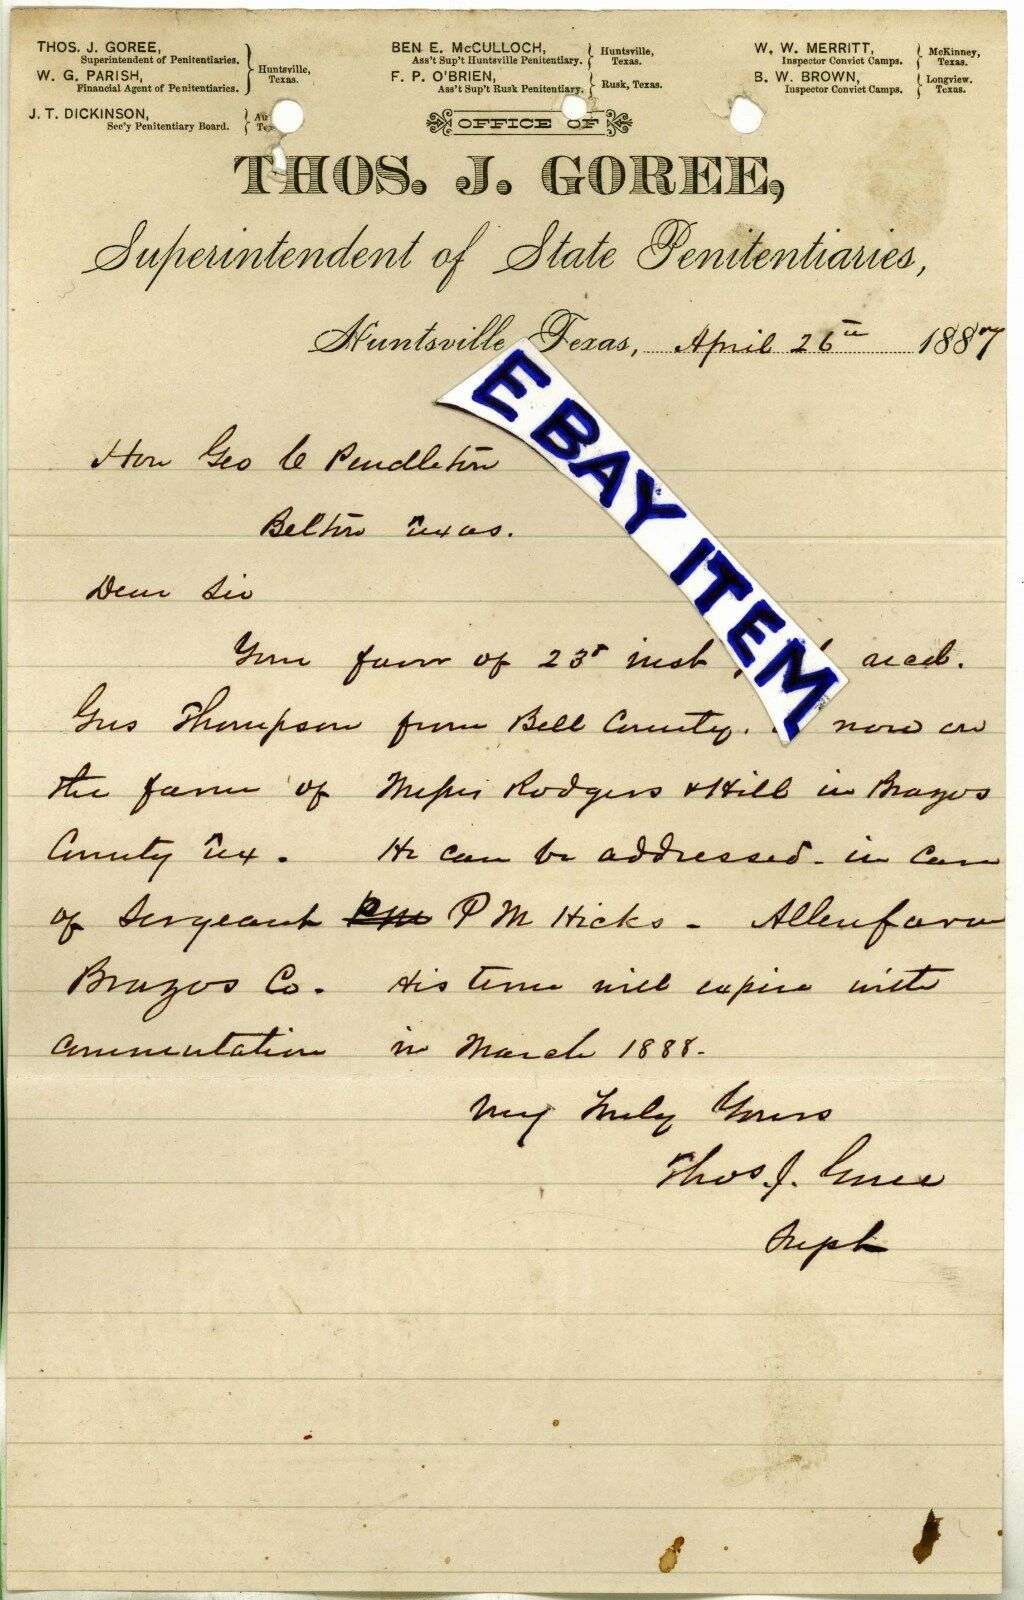 THOS. J. GOREE,
Superintendent of Penitentiaries.
W. G. PARISH,
Financial Agent of Penitentiaries.
Huntsville,
Texas.
J. T. DICKINSON,
Sec'y Penitentiary Board.
BEN E. McCULLOCH,
Ass't Sup't Huntsville Penitentiary.
Huntsville,
Texas.
F. P. O'BRIEN,
Ass't Sup't Rusk Penitentiary.
Rusk, Texas.
W. W. MERRITT,
Inspector Convict Camps.
McKinney,
Texas.
B. W. BROWN,
Inspector Convict Camps.
Longview.
Texas.
OFFICE OF
THOS. J. GOREE,
Superintendent of State Penitentiaries,
Huntsville Texas, April 26th 1887
Hon Geo C Pendleton
Belton Texas.
Dear Sir
Your favor of 23d inst recd.
Gus Thompson from Bell County. now on
the farm of Messrs Rodgers & Hill in Brazos
County Tex. He can be addressed in care
of Sergeant PM P M Hicks - Allenfarm
Brazos Co. His time will expire with
commutation in March 1888.
Very Truly Yours
Thos. J. Goree
Supt
EBAY ITEM